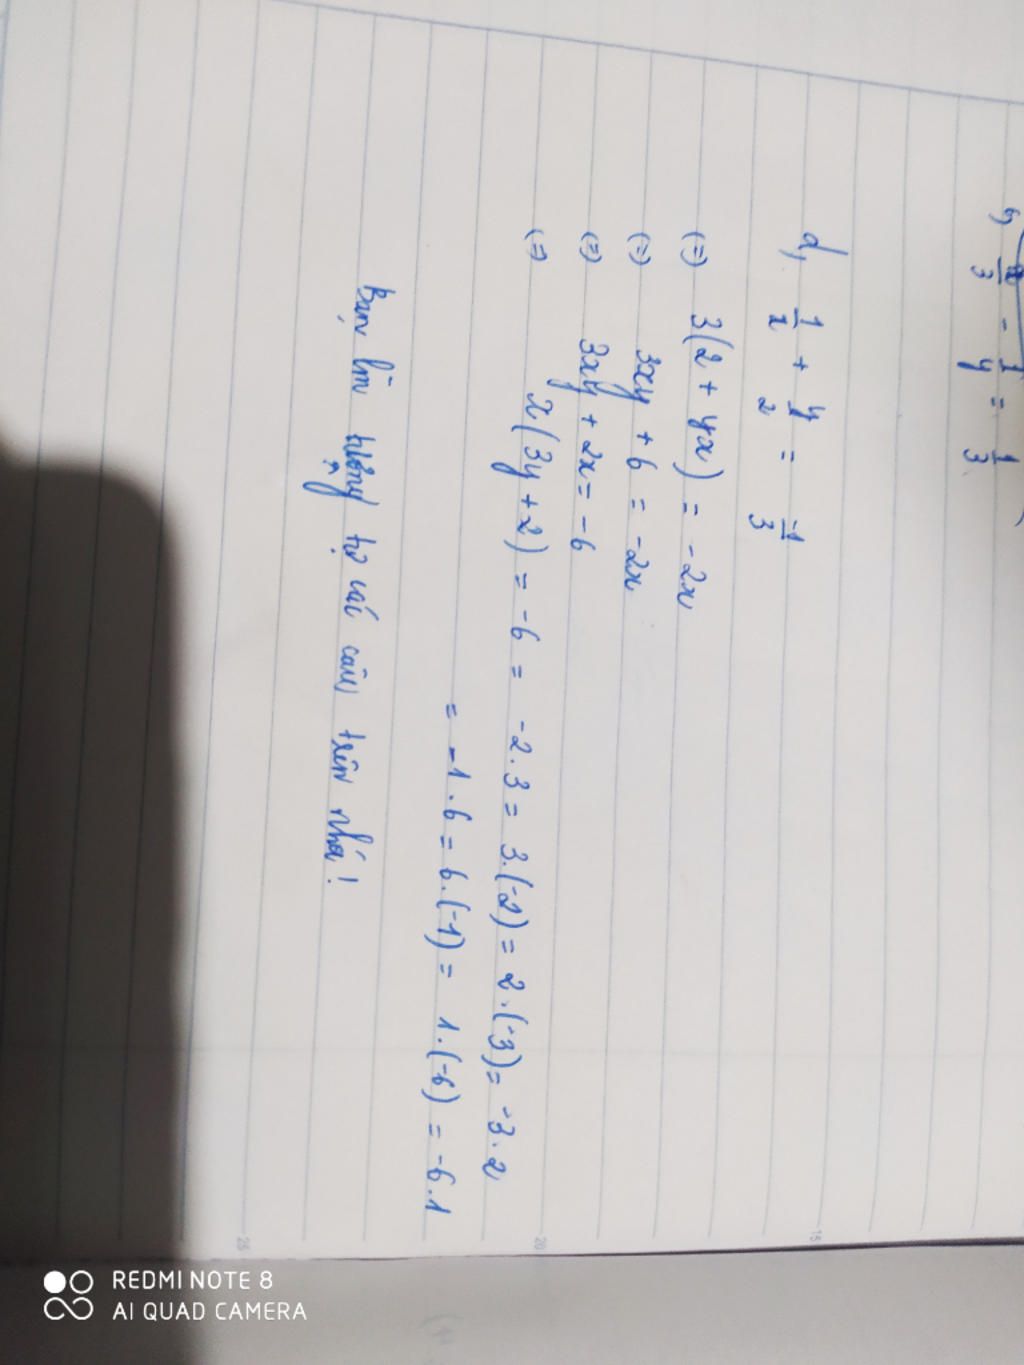 b, x/3 - 1/y = 1/3
d, 1/x + y/2 = -1/3
(=) 3(2 + yx) = -2x
(=) 3xy + 6 = -2x
(=) 3xy + 2x = -6
(=) x(3y + 2) = -6 = -2.3 = 3.(-2) = 2.(-3) = -3.2
= -1.6 = 6.(-1) = 1.(-6) = -6.1
Bạn làm tương tự các câu trên nhá!
15
20
25
REDMI NOTE 8
AI QUAD CAMERA